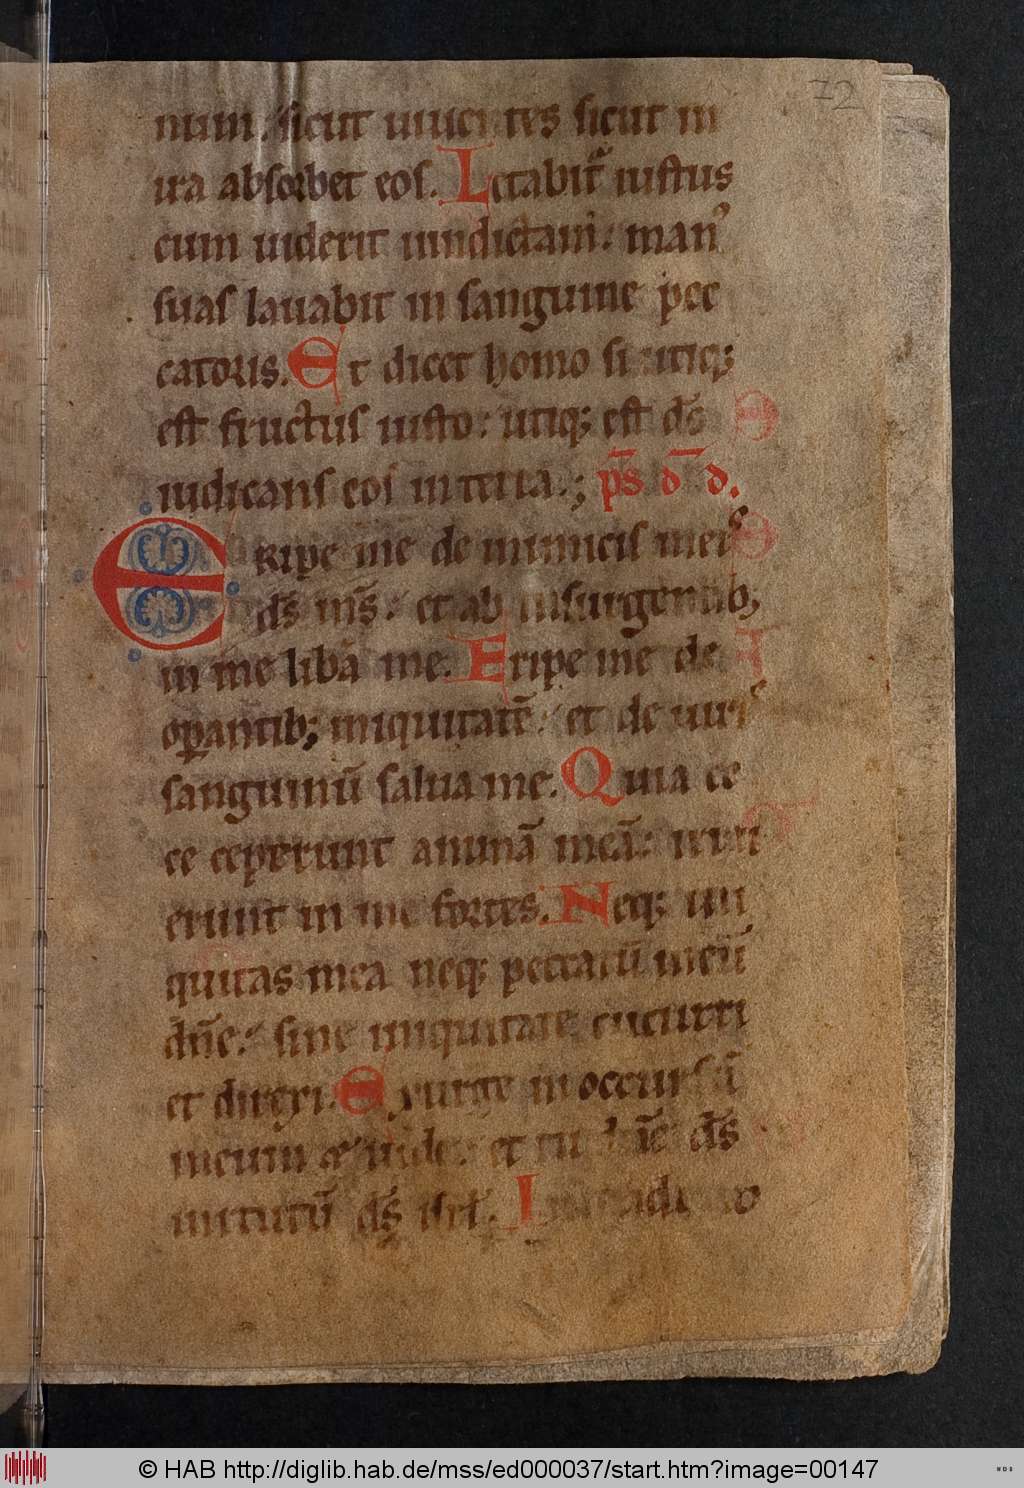 72
num. sicut uiuentes sicut in
ira absorbet eos. Letabit᷑ iustus
cum uiderit uindictam: man᾿
suas lauabit in sanguine pec
catoris. Et dicet homo si utiq;
est fructus iusto: utiq; est ds̄
iudicans eos in terra.; ps̄ d̄ d.
Eripe me de inimicis meis
ds̄ ms̄: et ab insurgentib;
in me libā me. Eripe me de
oꝑantib; iniquitatē: et de uiris
sanguinū salua me. Quia ec
ce ceperunt animā meā: irru
erunt in me fortes. Neq; ini
quitas mea neq; peccatū meū
dn̄e: sine iniquitate cucurri
et direxi. Exurge in occursū
meum & uide: et tu dn̄e ds̄
uirtutū ds̄ isrl̄.
© HAB http://diglib.hab.de/mss/ed000037/start.htm?image=00147